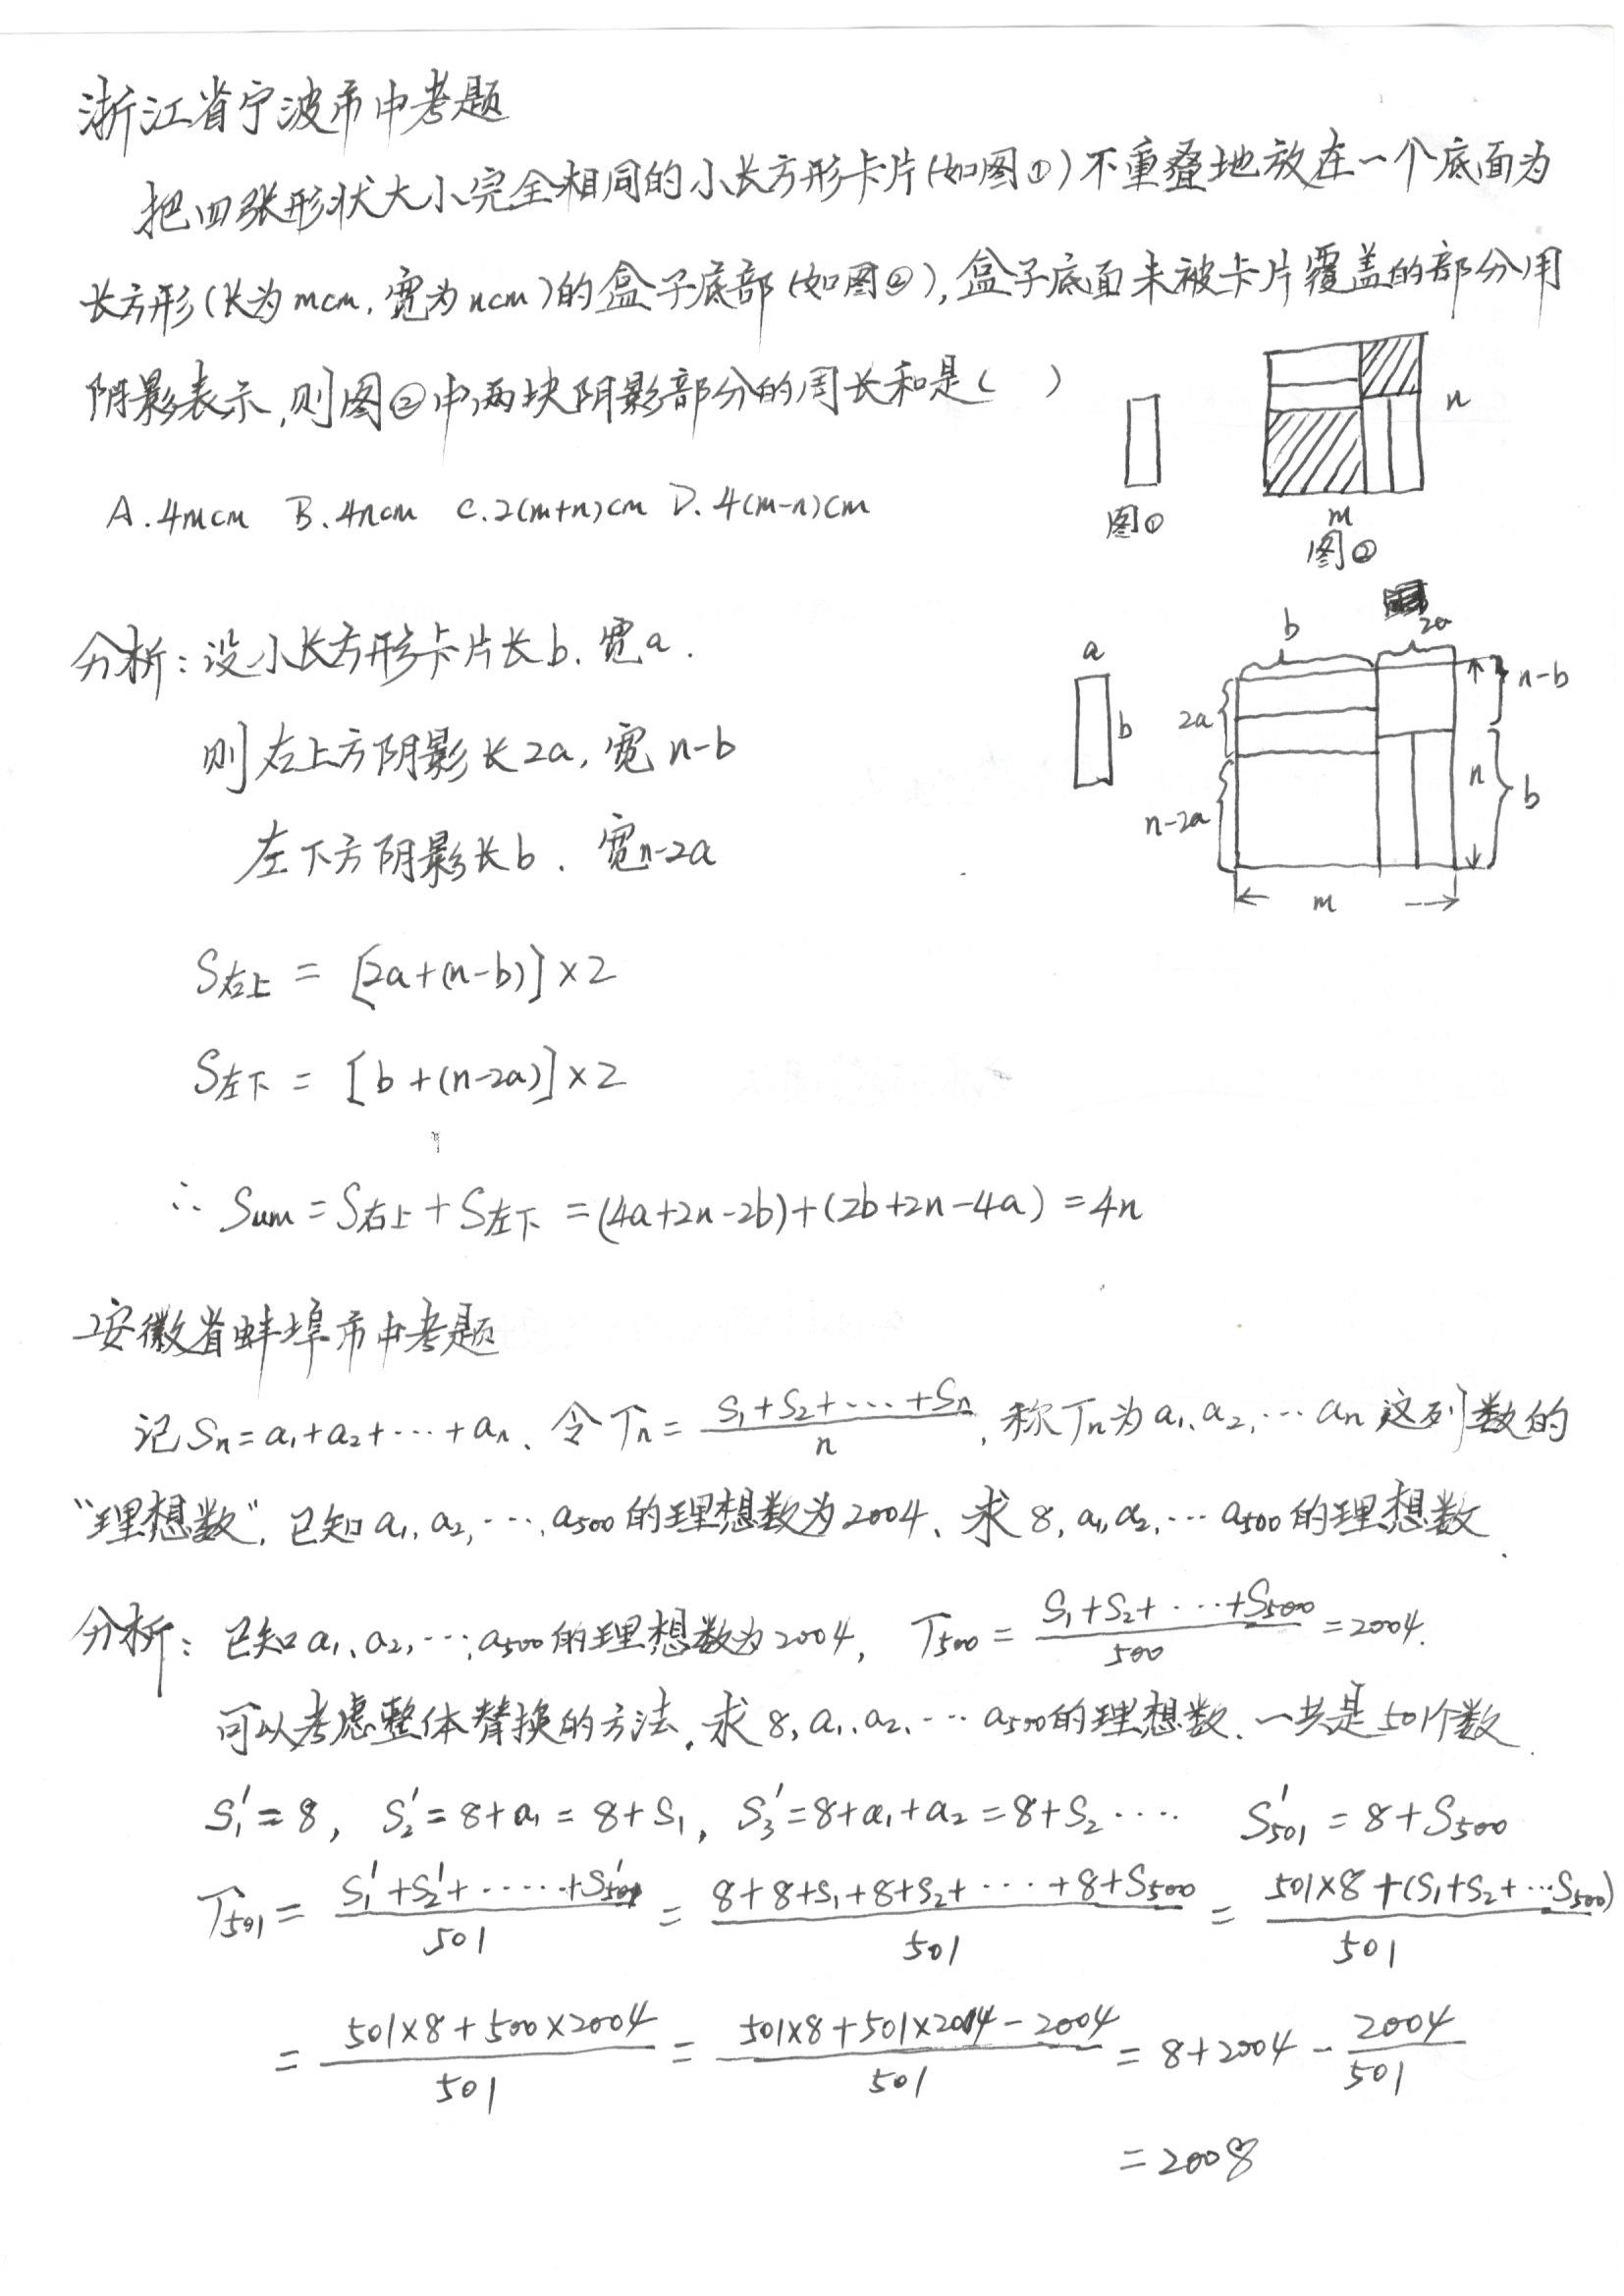 浙江省宁波市中考题
把四张形状大小完全相同的小长方形卡片(如图①)不重叠地放在一个底面为
长方形(长为mcm,宽为ncm)的盒子底部(如图②),盒子底面未被卡片覆盖的部分用
阴影表示,则图②中两块阴影部分的周长和是( )
A.4mcm B.4ncm C.2(m+n)cm D.4(m-n)cm
图①
n
m
图②
分析:设小长方形卡片长b,宽a.
则右上方阴影长2a,宽n-b
左下方阴影长b.宽n-2a
a
b
b
2a
2a
n-2a
n-b
n
b
m
S右上 = [2a+(n-b)]×2
S左下 = [b+(n-2a)]×2
∴ Sum=S右上+S左下=(4a+2n-2b)+(2b+2n-4a)=4n
安徽省蚌埠市中考题
记Sn=a₁+a₂+···+an、令Tn=(S₁+S₂+···+Sn)/n,称Tn为a₁、a₂,···an这列数的
“理想数”,已知a₁,a₂,···,a₅₀₀的理想数为2004、求8,a₁,a₂,···a₅₀₀的理想数.
分析:已知a₁、a₂,···,a₅₀₀的理想数为2004,T₅₀₀=(S₁+S₂+···+S₅₀₀)/500=2004.
可以考虑整体替换的方法.求8,a₁、a₂、···a₅₀₀的理想数、一共是501个数.
S₁'=8, S₂'=8+a₁=8+S₁, S₃'=8+a₁+a₂=8+S₂···· S₅₀₁'=8+S₅₀₀
T₅₀₁=(S₁'+S₂'+·····+S₅₀₁')/501=(8+8+S₁+8+S₂+····+8+S₅₀₀)/501=(501×8+(S₁+S₂+···S₅₀₀))/501
=(501×8+500×2004)/501=(501×8+501×2004-2004)/501=8+2004-2004/501
=2008